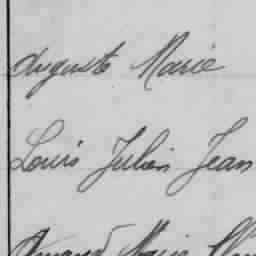 Auguste Marie
Louis Julien Jean
Armand Marie